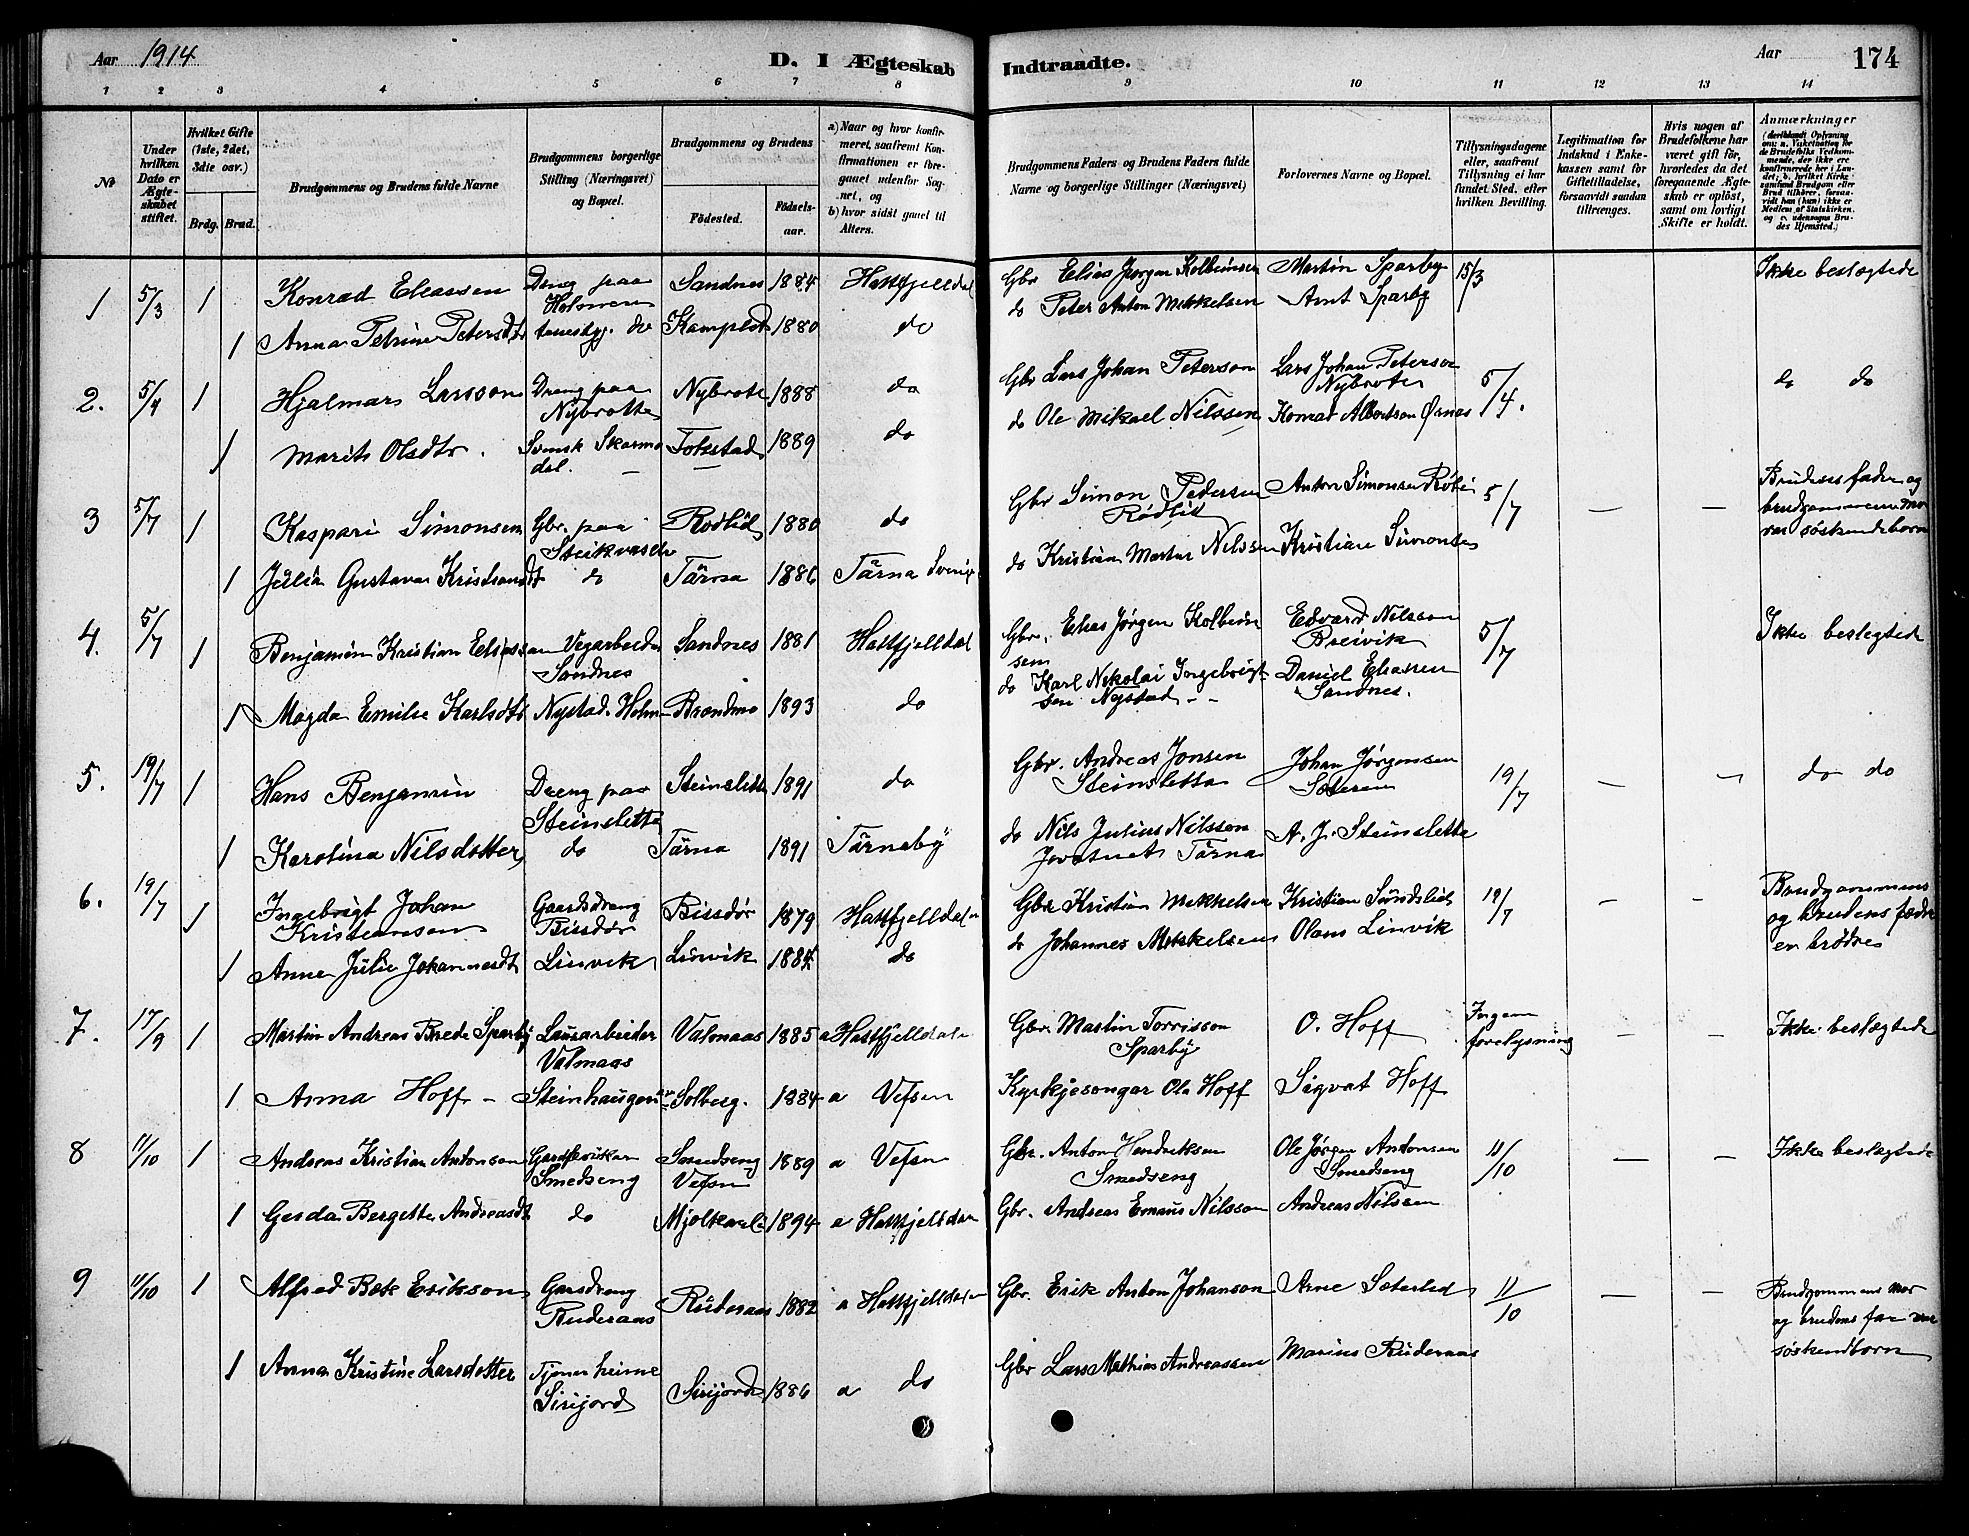 Aar 1914
D. I Ægteskab Indtraadte.
Aar
174
1 2 3 4 5 6 7 8 9 10 11 12 13 14
№
Under hvilken Dato er Ægteskabet stiftet.
Hvilket Gifte (1ste, 2det, 3die osv.)
Brdg. Brud.
Brudgommens og Brudens fulde Navne
Brudgommens borgerlige Stilling (Næringsvei) og Bopæl.
Brudgommens og Brudens
Födested.
Födselsaar.
a) Naar og hvor konfirmeret, saafremt Konfirmationen er foregaaet udenfor Sognet, og
b) hvor sidst gaaet til Alters.
Brudgommens Faders og Brudens Faders fulde Navne og borgerlige Stillinger (Næringsvei)
Forlovernes Navne og Bopæl.
Tillysningsdagene eller, saafremt Tillysning ei har fundet Sted, efter hvilken Bevilling.
Legitimation for Indskud i Enkekassen samt for Giftetilladelse, forsaavidt saadan tiltrænges.
Hvis nogen af Brudefolkene har været gift för, hvorledes da det foregaaende Ægteskab er oplöst, samt om lovligt Skifte er holdt.
Anmærkninger
1 5/3 1 Konrad Eliassen Dreng paa Holmen Sandnes 1884 Hatfjelldal Gbr Elias Jørgen Kolbeinsen Martin Sparby 15/3 Ikke beslægtede
1 Anna Petrine Petersdtr tenestg. do 1880 do do Peter Anton Mikkelsen Arnt Sparby
2. 5/4 1 Hjalmar Larsson Dreng paa Nybrotte Nybrote 1888 do Gbr Lars Johan Peterson Lars Johan Peterson Nybroten 5/4. do do
1 Marit Olsdtr. Svensk Skarmodal. Tokstad 1889 do do Ole Mikael Nilssen Konrad Albertsen Ørnes
3 5/7 1 Kaspari Simonsen Gbr. paa Steikvasdn Rødlid 1880 do Gbr Simon Pedersen Rødlid Anton Simonsen 5/7 — — Brudens fader og brudgommens mor var søskendeborn
1 Julia Gustava Kristiansdt do Tärna 1886 Tärna Sverige do Kristian Martin Nilssen Kristian Simonsen
4. 5/7 1 Benjamin Kristian Eliassen Vegarbeider Sandnes Sandnes 1881 Hatfjelldal Gbr. Elias Jørgen Kolbeinsen Edvard Nilsson Breivik 5/7 Ikke beslegtede
1 Magda Emilie Karlsdtr Nystad. Holm Brændmo 1893 do do Karl Nikolai Ingebrigtsen Nystad - - Daniel Eliassen Sandnes.
5. 19/7 1 Hans Benjamin Dreng paa Steinslette Steinslette 1891 do Gbr. Andreas Jonsen Steinsletta Johan Jørgensen Sæteren 19/7 — — do do
1 Karolina Nilsdotter do Tärna 1891 Tärnaby do Nils Julius Nilsson Tärna A. J. Steinslette
6. 19/7 1 Ingebrigt Johan Kristiansen Gaardsdreng Bissdør Bissdør 1879 Hatfjelldalen Gbr Kristian Mikkelsen Kristian Sundslid 19/7 — — Brudgommens og brudens fædre er brødre
1 Anna Julie Johannesdt Linvik Linvik 1884 do do Johannes Mikkelsen Olaus Linvik
7. 17/9 1 Martin Andreas Brede Sparby Lausarbeider Valmaas Valmaas 1885 a Hatfjelldalen Gbr. Martin Torrisson Sparby O. Hoff Ingen forelysning — — Ikke beslægtede
1 Anna Hoff - Steinhaugen Solberg. 1884 a Vefsn Kyrkjesongar Ola Hoff Sigvat Hoff
8 11/10 1 Andreas Kristian Antonson Gardbrukar Smedseng Smedseng Vefsn 1889 a Vefsn Gbr. Anton Hendriksen Smedseng Ole Jørgen Antonsen Smedseng 11/10 — — Ikke beslægtede
1 Gerda Bergette Andreasdt do 1894 a Hatfjelldalen Gbr. Andreas Emaus Nilsson Andreas Nilssen
9 11/10 1 Alfred Bek Erikson Garsdreng Ruderaas Ruderaas 1882 a Hatfjelldalen Gbr. Erik Anton Johanson Arne Sæterlid 11/10 — — Brudgommens mor og brudens far var søskendborn
1 Anna Kristine Larsdotter Tjener heime Sirijord Sirijord 1886 a do Gbr Lars Mathias Andreassen Marius Ruderaas